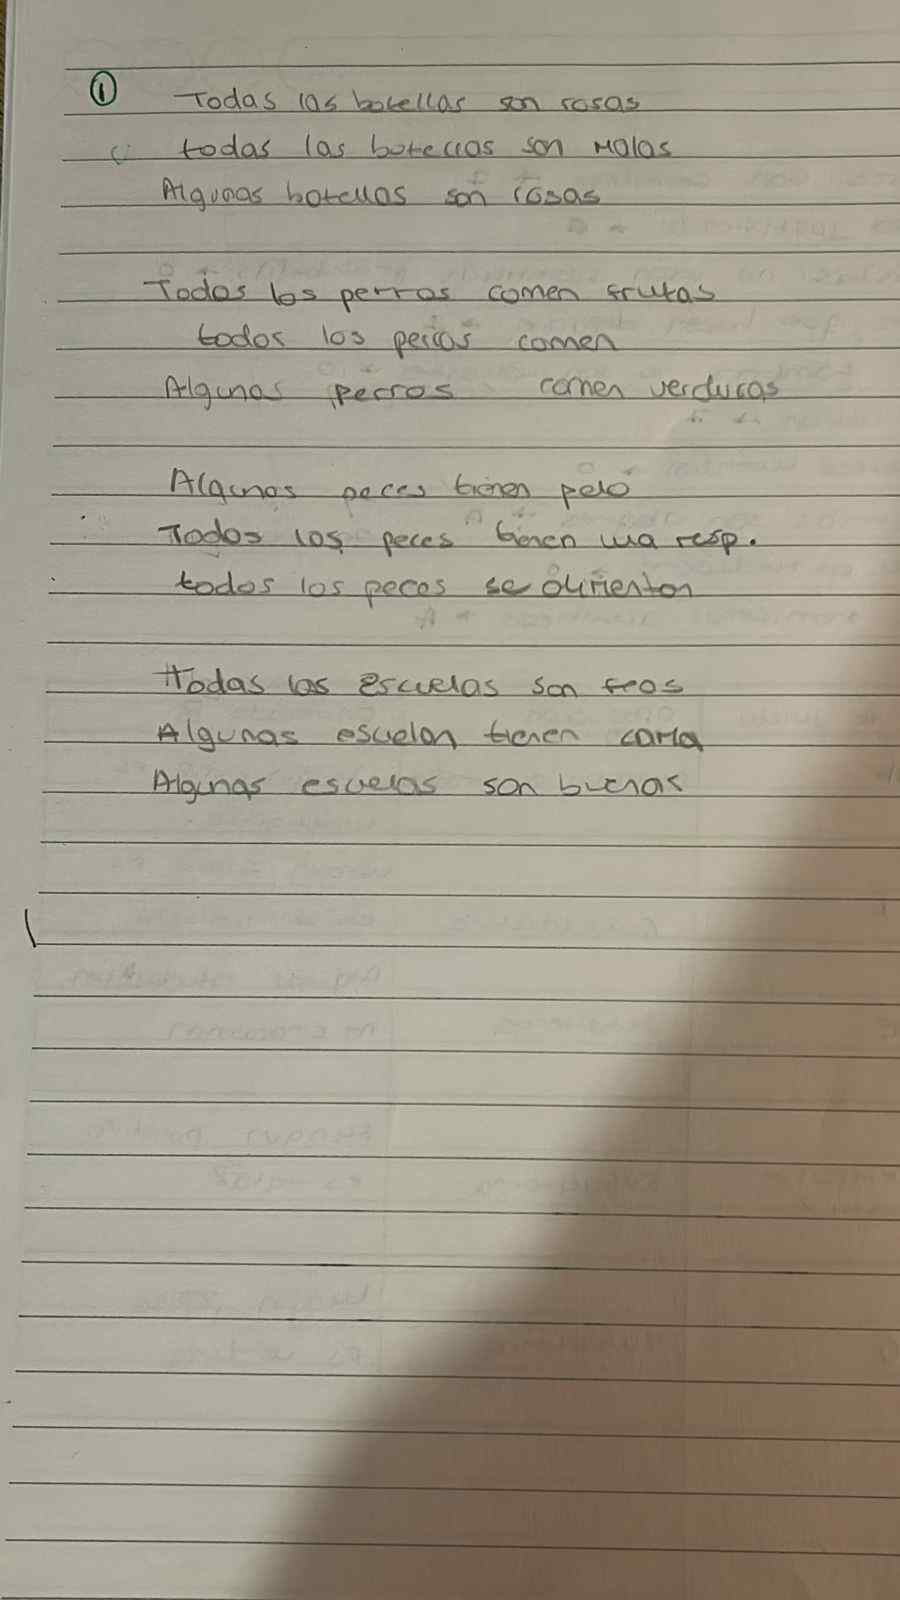 ① Todas las botellas son rosas
todas las botellas son Malas
Algunas botellas son rosas
Todos los perros comen frutas
todos los perros comen
Algunos perros comen verduras
Algunos peces tienen pelo
Todos los peces tienen una resp.
todos los peces se alimentan
Todas las escuelas son feas
Algunas escuelan tienen
Algunas escuelas son buenas